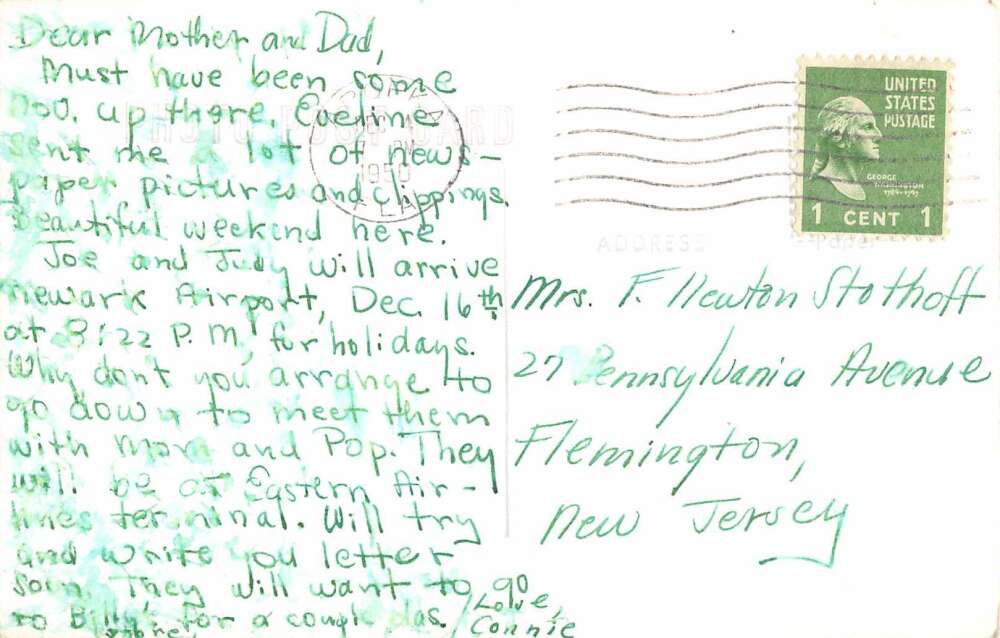 Dear Mother and Dad,
Must have been some
Nov. up there. Eveline
sent me a lot of news-
paper pictures and clippings.
Beautiful weekend here.
Joe and Judy will arrive
Newark Airport, Dec. 16th
at 8:22 P.M. for holidays.
Why don't you arrange to
go down to meet them
with Mom and Pop. They
will be at Eastern Air-
lines terminal. Will try
and write you letter
soon. They will want to go
to Billy's for a couple das.
Love,
Connie
PHOTO POST CARD
1950
LA
UNITED
STATES
POSTAGE
GEORGE
WASHINGTON
1789-1797
1 CENT 1
ADDRESS
Paper
Mrs. F. Newton Stothoff
27 Pennsylvania Avenue
Flemington,
New Jersey